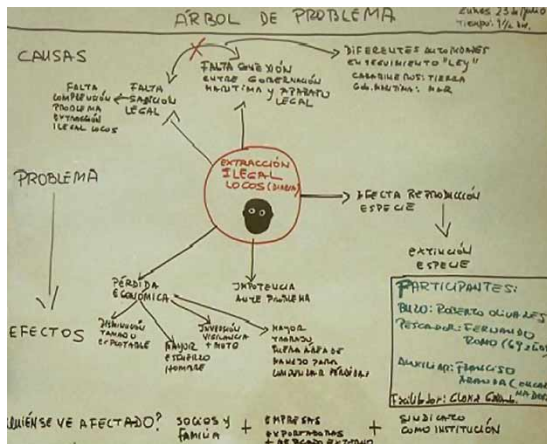 ÁRBOL DE PROBLEMA
LUNES 23 de junio
TIEMPO: 1 1/2 hr.
CAUSAS
FALTA
COMPRENSIÓN
PROBLEMA
EXTRACCIÓN
ILEGAL LOCOS
FALTA
SANCIÓN
LEGAL
FALTA CONEXIÓN
ENTRE GOBERNACIÓN
MARÍTIMA Y APARATO
LEGAL
DIFERENTES AUTORIDADES
EN SEGUIMIENTO "LEY"
CARABINEROS: TIERRA
GOB. MARITIMA: MAR
PROBLEMA
EXTRACCIÓN
ILEGAL
LOCOS (DIARIA)
AFECTA REPRODUCCIÓN
ESPECIE
EXTINCIÓN
ESPECIE
EFECTOS
PÉRDIDA
ECONÓMICA
IMPOTENCIA
ANTE PROBLEMA
DISMINUCIÓN
TAMAÑO
EXPLOTABLE
MAYOR
ESFUERZO
HOMBRE
INVERSIÓN
VIGILANCIA
+ MOTO
MAYOR
TRABAJO
FUERA AREA DE
MANEJO PARA
COMPENSAR PÉRDIDAS
PARTICIPANTES:
BUZO: ROBERTO OLIVARES
PESCADOR: FERNANDO
ROMO (69 años)
AUXILIAR: FRANCISCO
ARANDA
Facilitador: GLORIA
QUIÉN SE VE AFECTADO?
SOCIOS Y
FAMILIA
+
EMPRESAS
EXPORTADORAS
+ MERCADO EXTERNO
+
SINDICATO
COMO INSTITUCIÓN